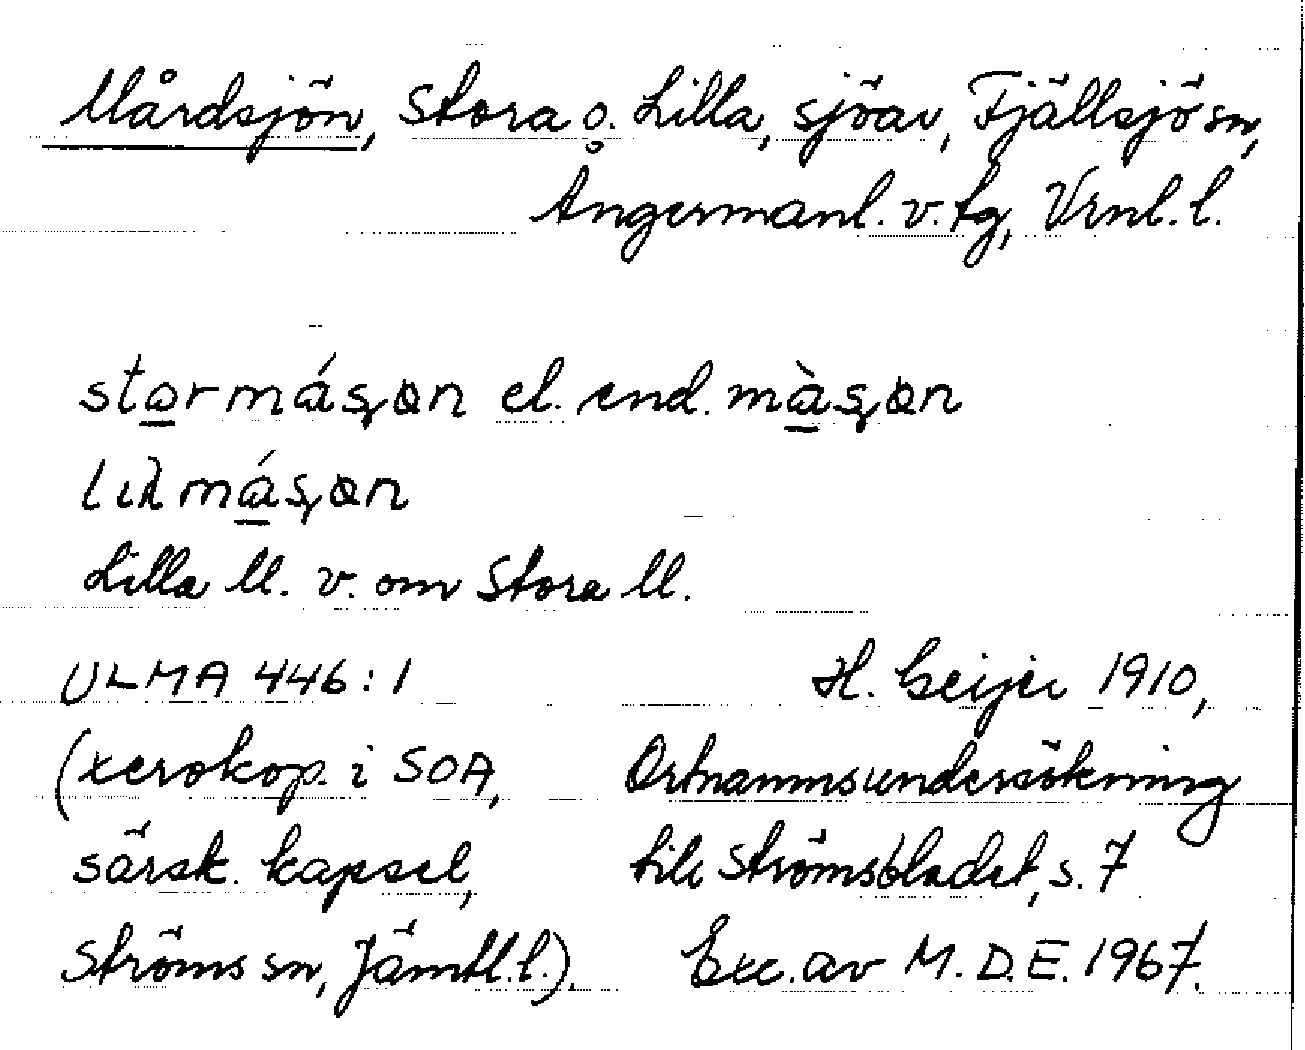 Mårdsjön, Stora o. Lilla, sjöar, Fjällsjö sn,
Ångermanl. v. tg, Vrnl. l.
starmásʂøn el. end. màsʂøn
lıλmásʂøn
Lilla M. v. om Stora M.
ULMA 446:1 H. Geijer 1910,
(xerokop. i SOA, Ortnamnsundersökning
särsk. kapsel, till Strömsbladet, s. 7
Ströms sn, Jämtl. l.). Exc. av M.D.E. 1967.